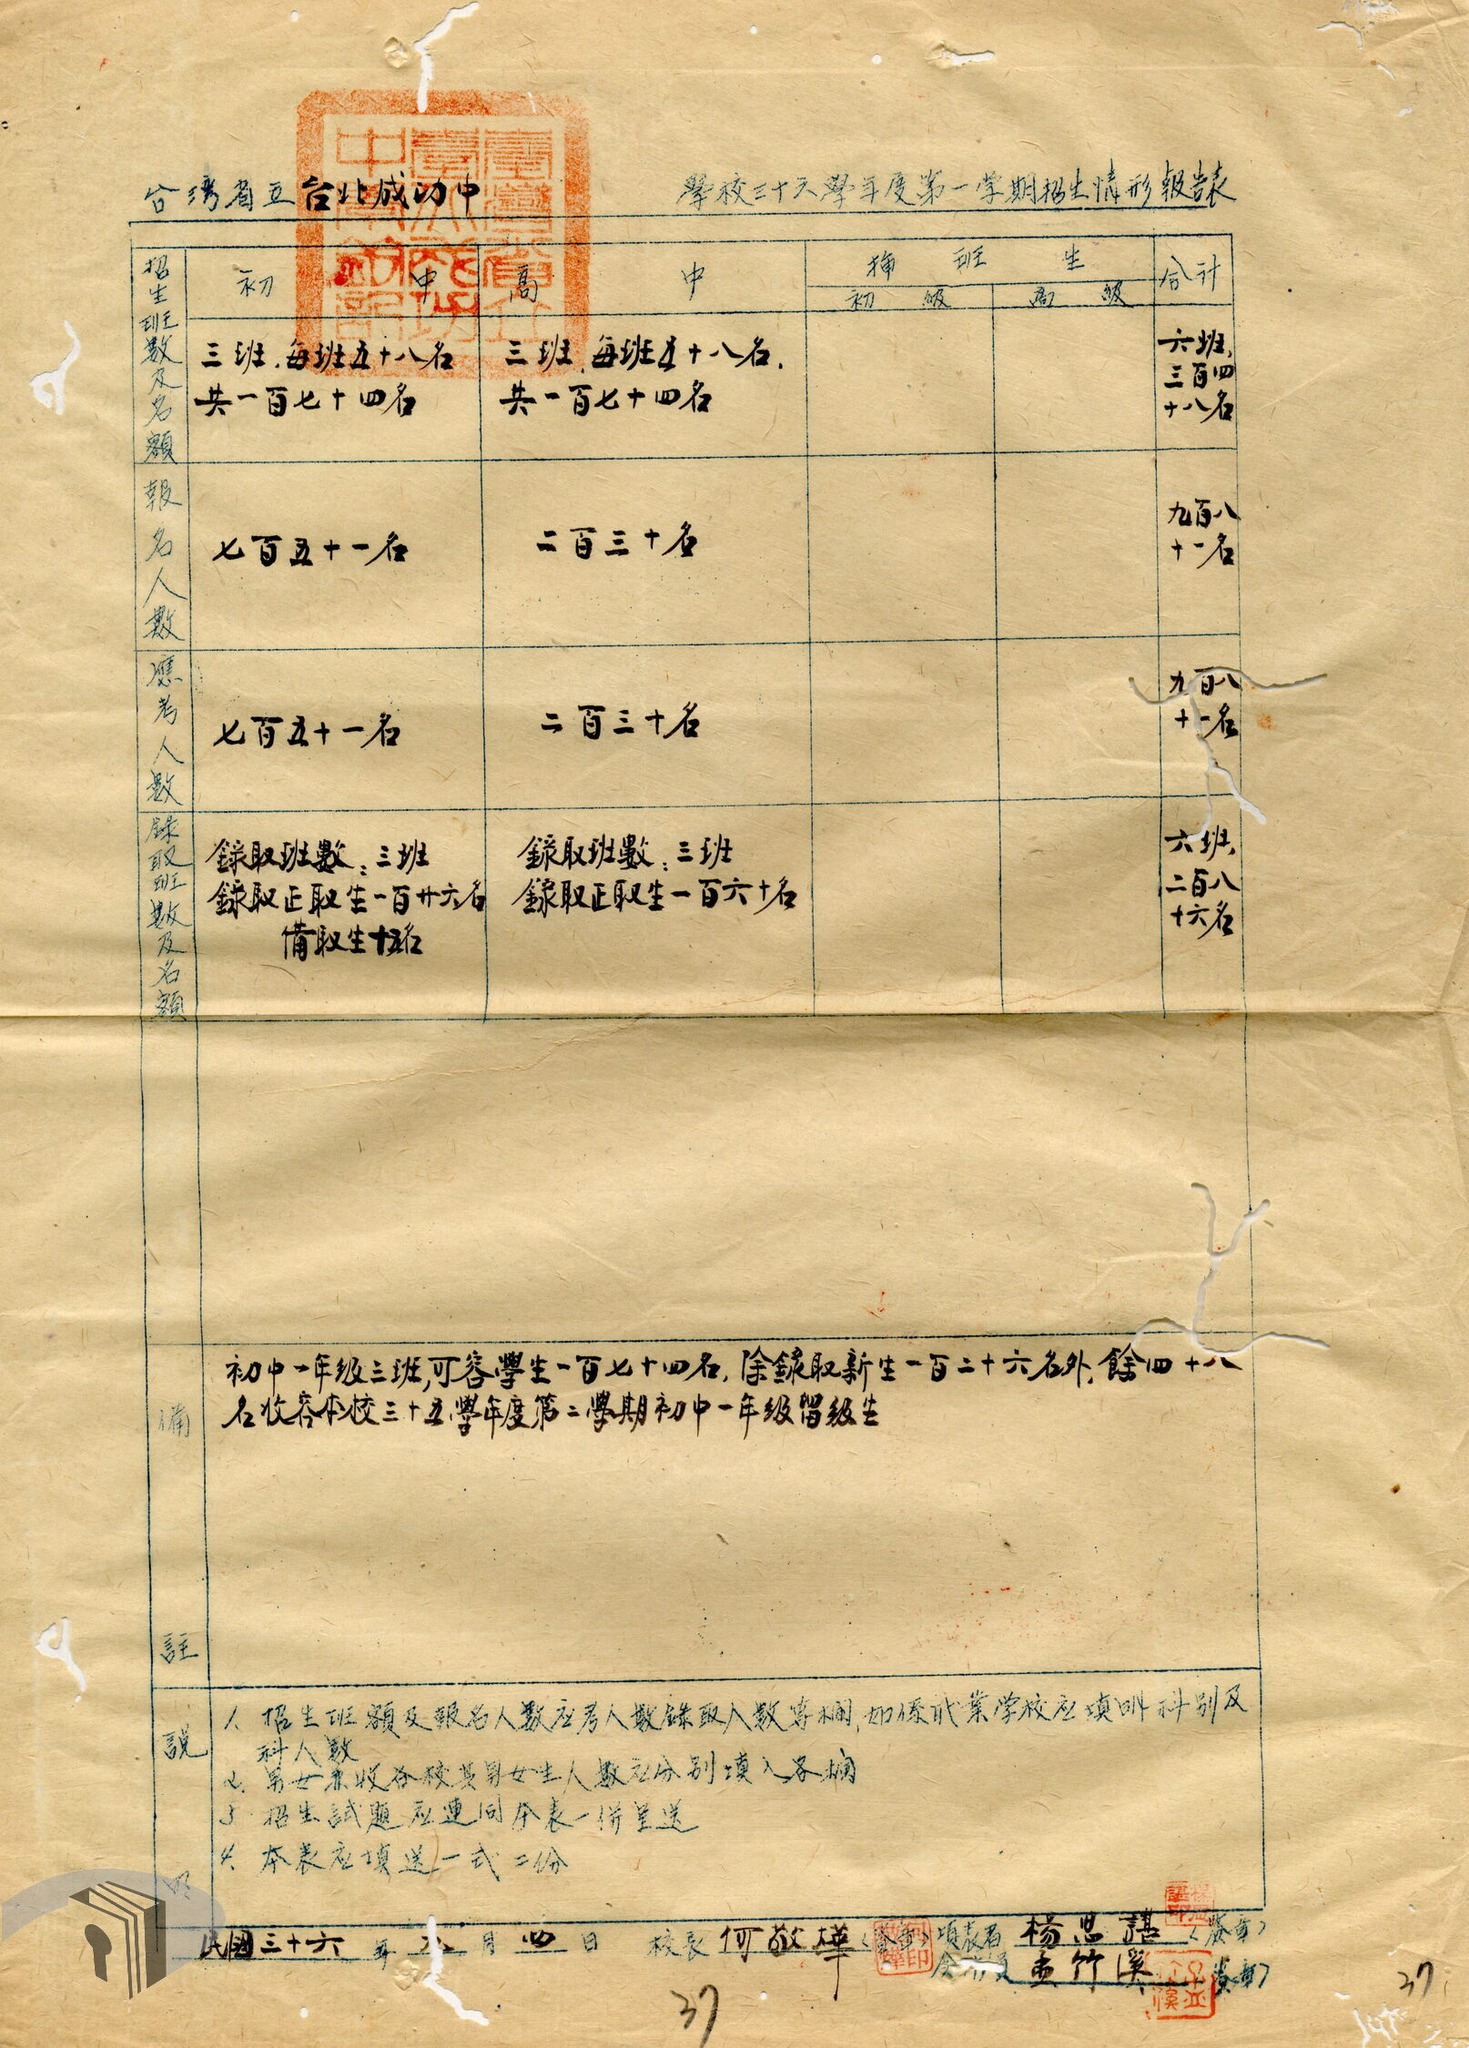 台灣省立台北成功中學校三十六學年度第一学期招生情形報告表
招生班數及名額
初中
高中
插班生
初級
高級
合計
三班,每班五十八名
共一百七十四名
三班,每班五十八名,
共一百七十四名
六班,
三百四
十八名
報名人數
七百五十一名
二百三十名
九百八
十一名
應考人數
七百五十一名
二百三十名
九百八
十一名
錄取班數及名額
錄取班數:三班
錄取正取生一百廿六名
備取生十五名
錄取班數:三班
錄取正取生一百六十名
六班,
二百八
十六名
備註
初中一年級三班,可容學生一百七十四名,除錄取新生一百二十六名外,餘四十八
名收容本校三十五學年度第二學期初中一年級留級生
說明
1、招生班額及報名人數应考人數錄取人數等欄,如係职業学校应填明科別及
科人數
2、男女兼收各校其男女生人數应分別填入各欄
3、招生試題应連同本表一併呈送
4、本表应填送一式二份
民國三十六年 月四日 校長何敬燁(蓋章)填表者楊思諶(蓋章)
孟竹溪(蓋章)
37
37